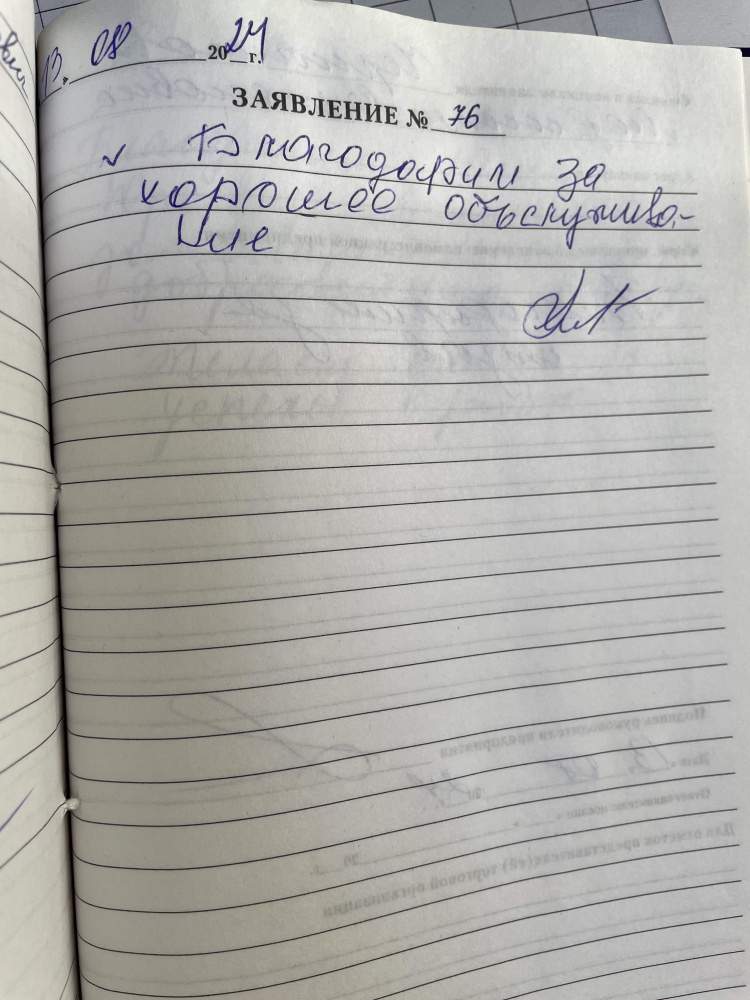 13. 08 2024 г.
ЗАЯВЛЕНИЕ № 76
Благодарим за
хорошее обслужива-
ние